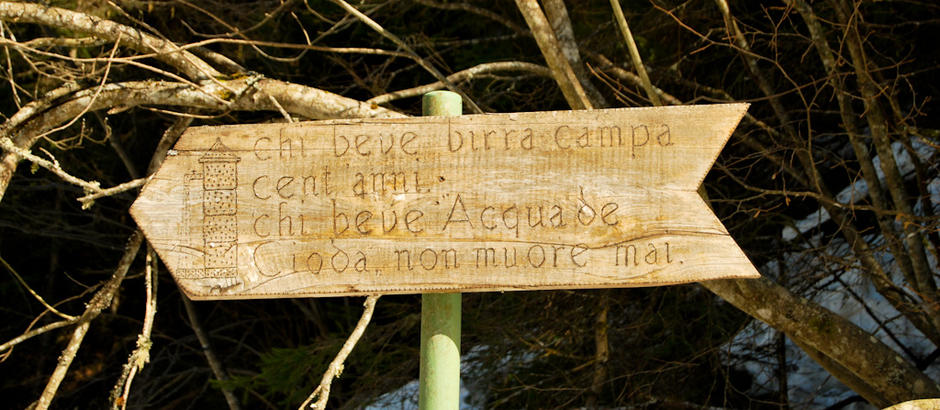 chi beve birra campa
cent anni.
chi beve Acqua de
Cioda, non muore mai.